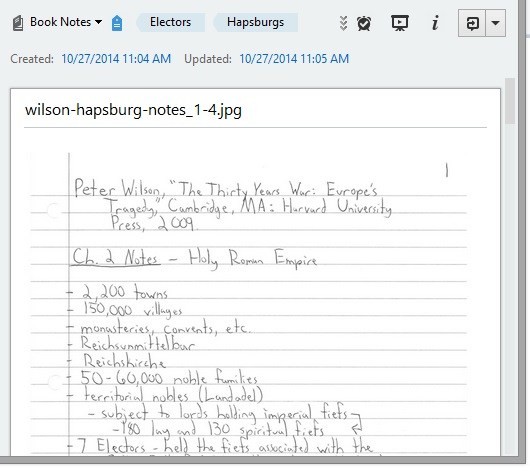 Book Notes Electors Hapsburgs
Created: 10/27/2014 11:04 AM Updated: 10/27/2014 11:05 AM
wilson-hapsburg-notes_1-4.jpg
1
Peter Wilson, "The Thirty Years War: Europe's
Tragedy," Cambridge, MA: Harvard University
Press, 2009.
Ch. 2 Notes - Holy Roman Empire
- 2,200 towns
- 150,000 villages
- monasteries, convents, etc.
- Reichsunmittelbar
- Reichskirche
- 50-60,000 noble families
- territorial nobles (Landadel)
- subject to lords holding imperial fiefs
- 180 lay and 130 spiritual fiefs
- 7 Electors - held the fiefs associated with the